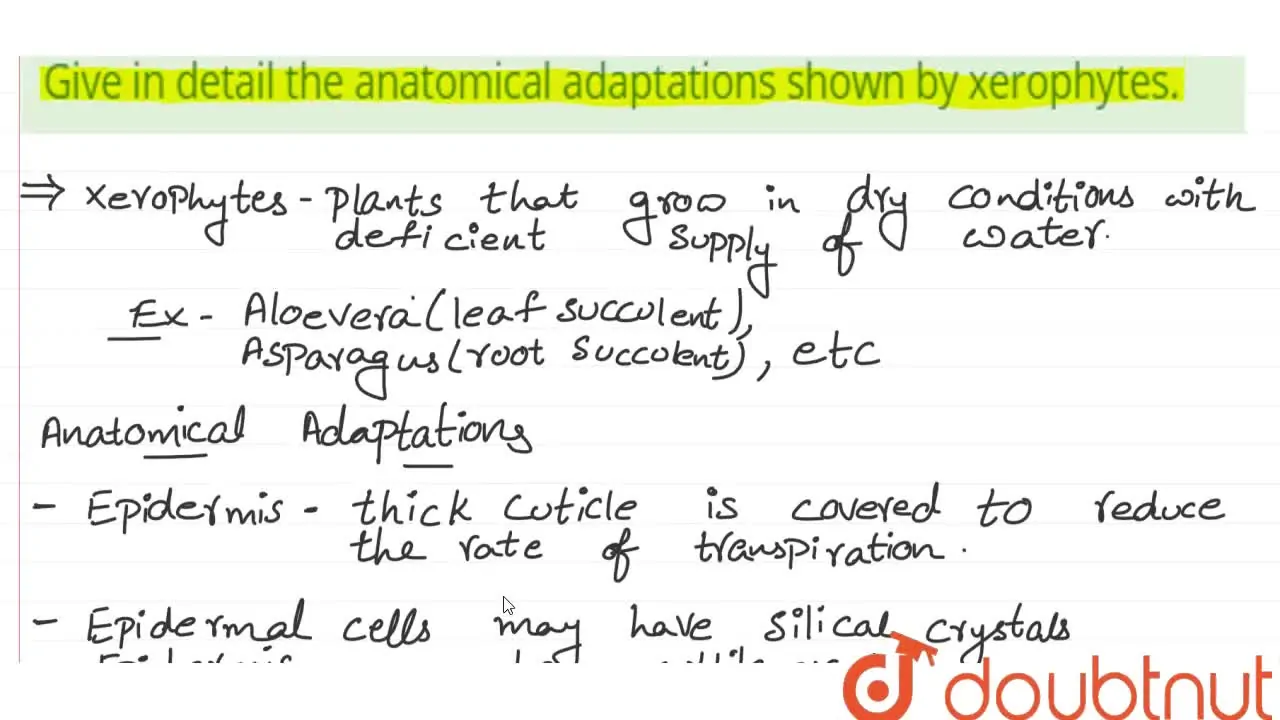 Give in detail the anatomical adaptations shown by xerophytes.
⇒ Xerophytes - plants that grow in dry conditions with
deficient supply of water.
Ex - Aloevera (leaf succulent),
Asparagus (root succulent), etc
Anatomical Adaptations
- Epidermis - thick cuticle is covered to reduce
the rate of transpiration.
- Epidermal cells may have silical crystals
doubtnut